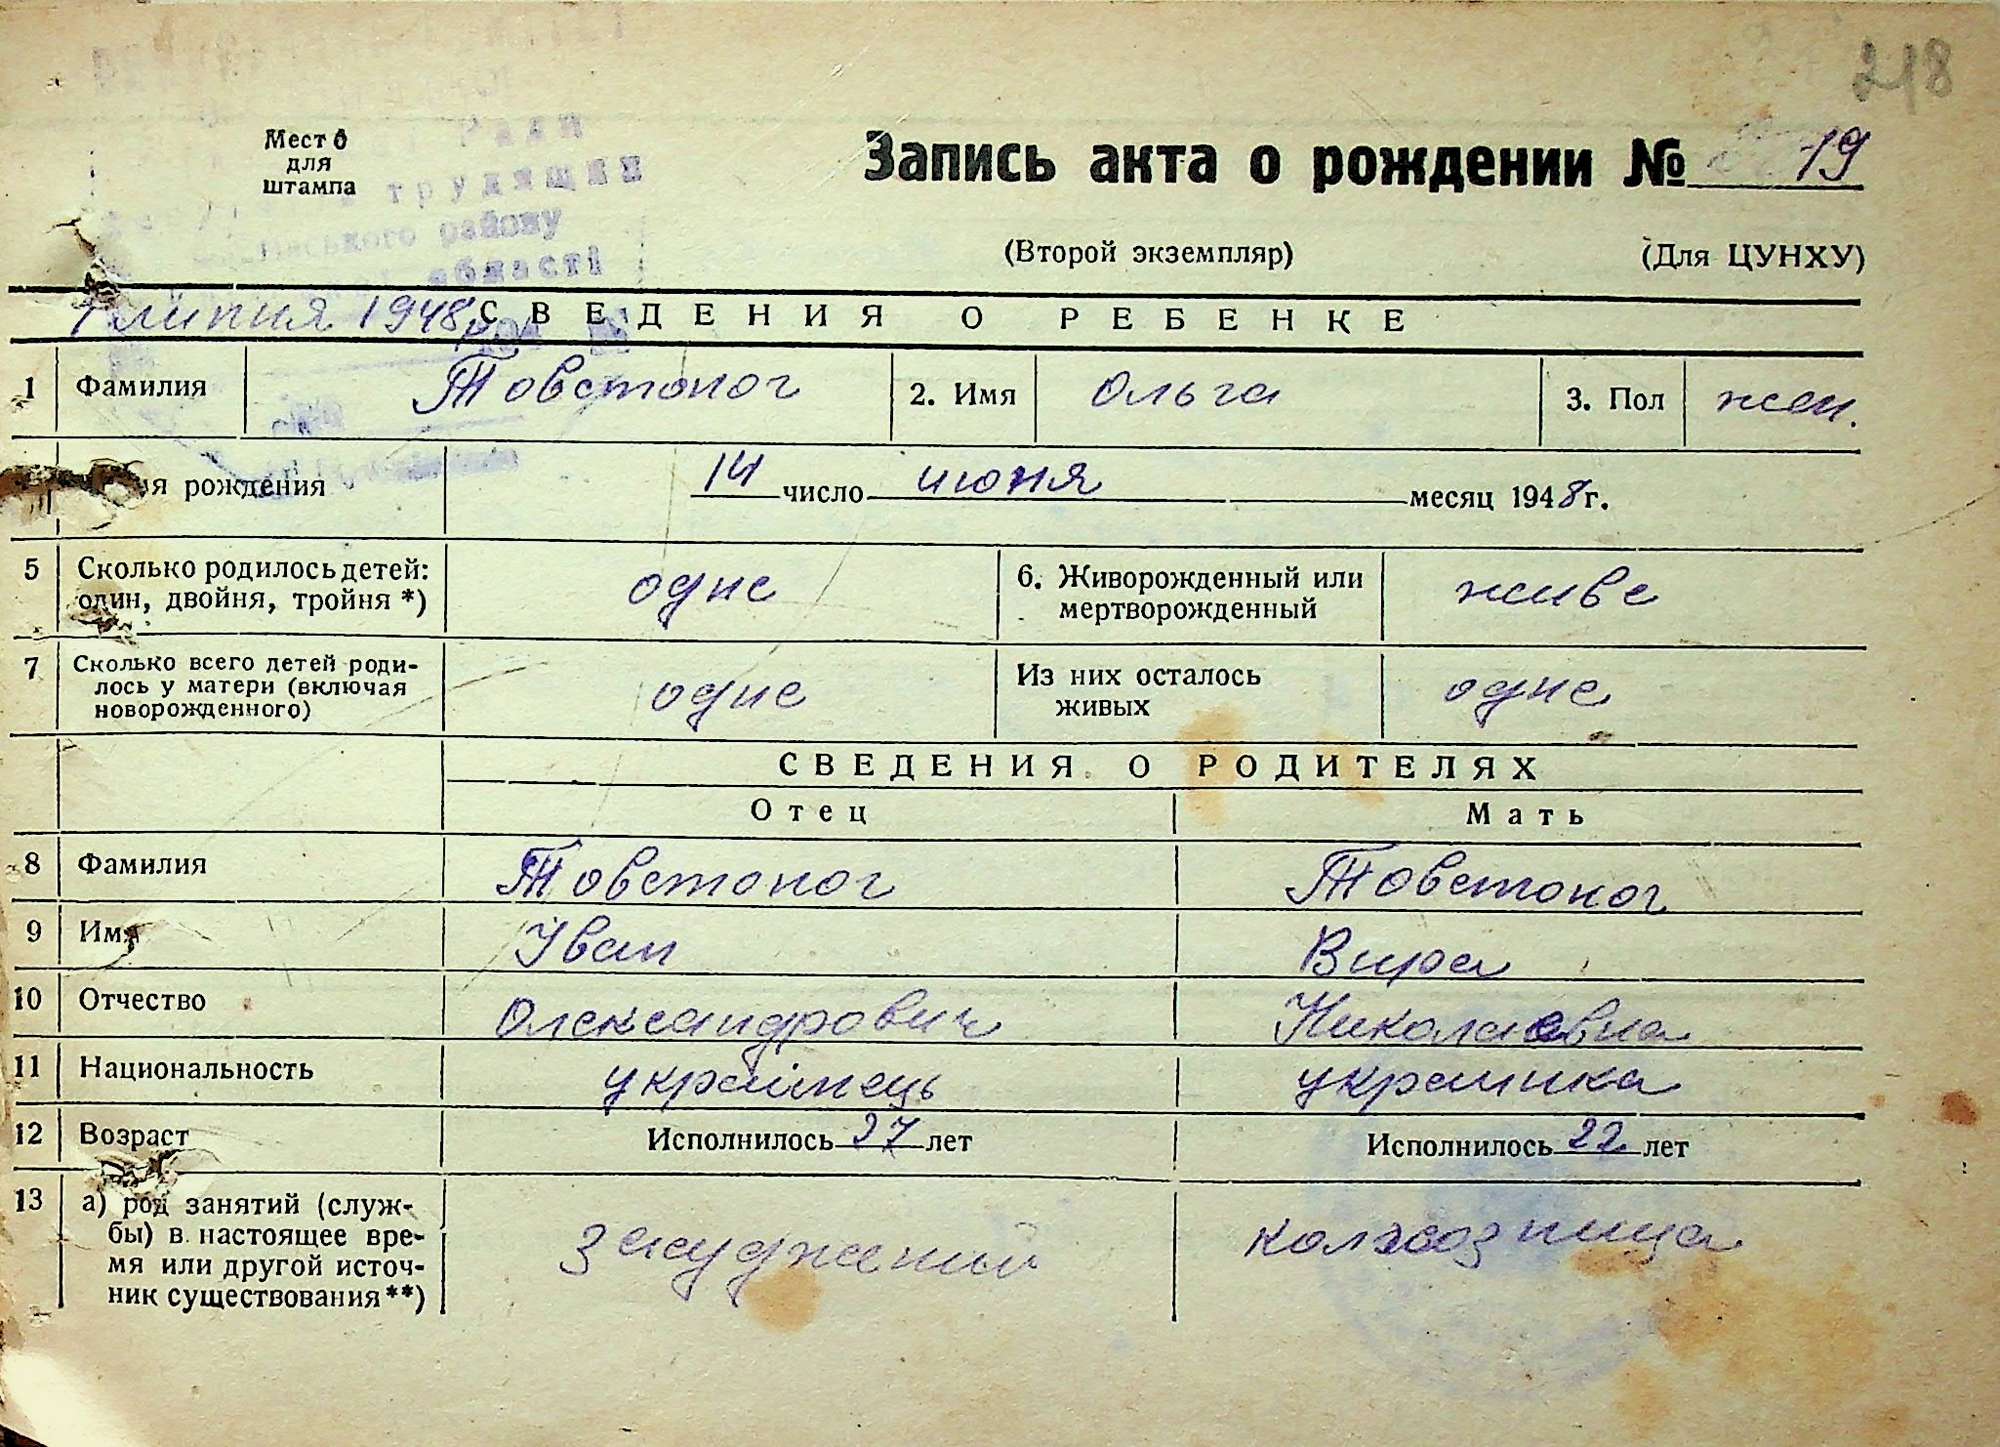 218
Место
для
штампа
Ради
трудящих
району
області
Запись акта о рождении № 19
(Второй экземпляр) (Для ЦУНХУ)
1 липня 1948 р
СВЕДЕНИЯ О РЕБЕНКЕ
1 Фамилия Товстоног 2. Имя Ольга 3. Пол жен.
рождения 14 число июня месяц 1948 г.
5 Сколько родилось детей: один, двойня, тройня *) одне 6. Живорожденный или мертворожденный живе
7 Сколько всего детей роди-
лось у матери (включая
новорожденного) одне Из них осталось живых одне
СВЕДЕНИЯ О РОДИТЕЛЯХ
Отец Мать
8 Фамилия Товстоног Товстоног
9 Имя Іван Вира
10 Отчество Олександрович Николаевна
11 Национальность українець украинка
12 Возраст Исполнилось 27 лет Исполнилось 22 лет
13 а) род занятий (служ-
бы) в настоящее вре-
мя или другой источ-
ник существования **) колхозница